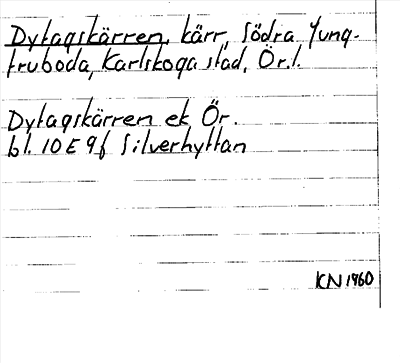 Dytagskärren, kärr, Södra Jung-
fruboda, Karlskoga stad, Ör.l.
Dytagskärren ek Ör.
bl. 10E 9f Silverhyttan
KN 1960